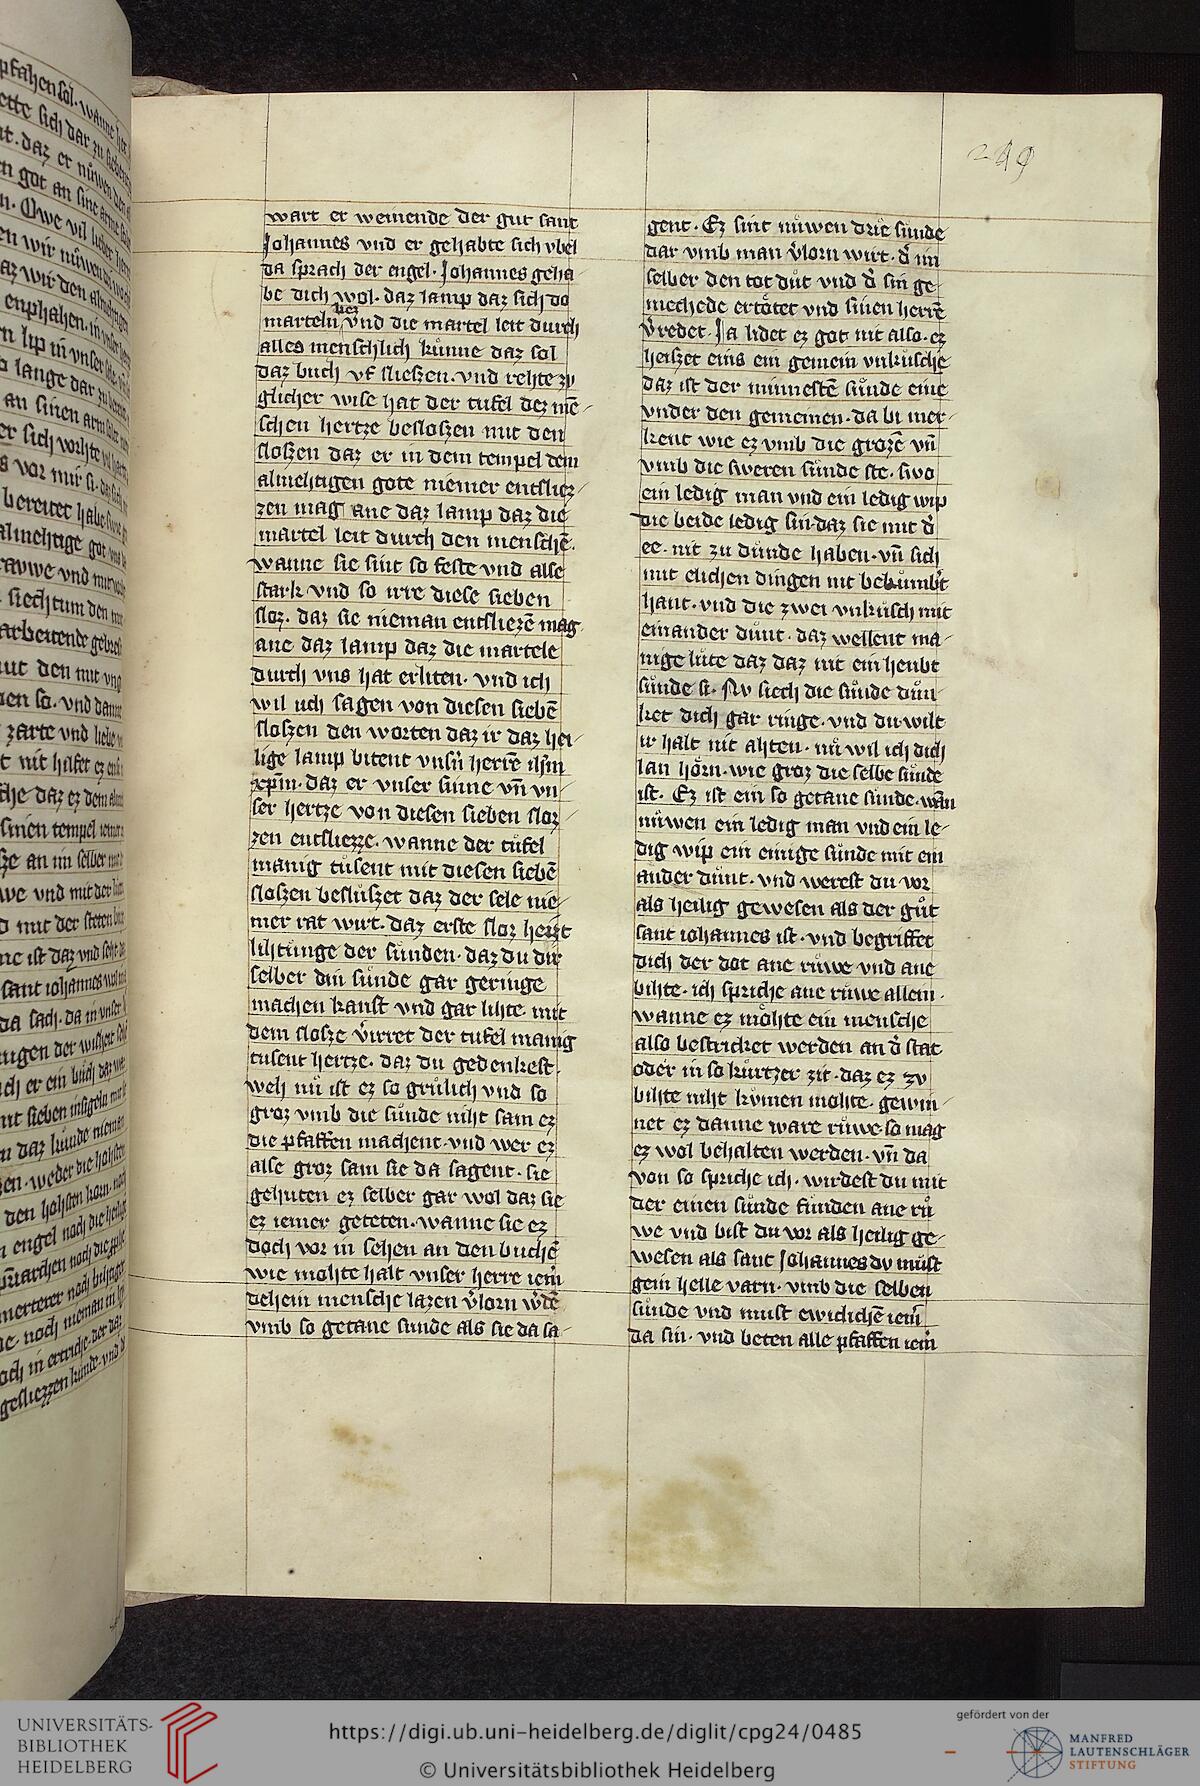 249
wart er weinende der gut sant
Johannes vnd er gehabte sich vbel
da sprach der engel. Johannes geha
be dich wol. daz lamp daz sich do
marteln liez vnd die martel leit durch
alles menschlich kůnne daz sol
daz buch vf sliessen. vnd rehte zu
glicher wise hat der tufel dez mē-
schen hertze beslossen mit den
slossen daz er in dem tempel dem
almehtigen gote niemer entsliez-
zen mag ane daz lamp daz die
martel leit durch den menschē.
wanne sie sint so feste vnd alse
stark vnd so irre diese sieben
sloz. daz sie nieman entsliezē mag
ane daz lamp daz die martele
durch vns hat erliten. vnd ich
wil uch sagen von diesen siebē
slossen den worten daz ir daz hei-
lige lamp bitent vnsn̄ herrē ih̄m
xp̄m. daz er vnser sinne vn̄ vn-
ser hertze von diesen sieben sloz-
zen entsliezze. wanne der tůfel
manig tůsent mit diesen siebē
slossen beslůszet daz der sele nie-
mer rat wirt. daz erste sloz heiszt
lihtunge der sůnden. daz du dir
selber din sůnde gar geringe
machen kanst vnd gar lihte. mit
dem slosze v̄irret der tufel manig
tusent hertze. daz du gedenkest.
weh nů ist ez so grůlich vnd so
groz vmb die sůnde niht sam ez
die pfaffen machent. vnd wer ez
alse groz sam sie da sagent. sie
gehuten ez selber gar wol daz sie
ez iemer geteten. wanne sie ez
doch vor in sehen an den buchē
wie mohte halt vnser herre iem̄
dehein mensche lazen v̄lorn w̄dē
vmb so getane sunde als sie da sa-
gent. Ez sint nůwen drie sůnde
dar vmb man v̄lorn wirt. d̄ im
selber den tot důt vnd d̄ sin ge-
mechede ertőtet vnd sinen herrē
v̄redet. Ja lidet ez got nit also. ez
heiszet eins ein gemein vnkůsche
daz ist der minnestē sůnde eine
vnder den gemeinen. da bi mer-
kent wie ez vmb die grozē vn̄
vmb die sweren sůnde ste. swo
ein ledig man vnd ein ledig wip
die beide ledig sin daz sie mit d̄
ee. nit zu důnde haben. vn̄ sich
mit elichen dingen nit bekůmbt̄
hant. vnd die zwei vnkusch mit
einander důnt. daz wellent ma-
nige lůte daz daz nit ein heubt
sůnde si. Nv siech die sůnde dun-
ket dich gar ringe. vnd du wilt
ir halt nit ahten. nů wil ich dich
lan hőrn. wie groz die selbe sůnde
ist. Ez ist ein so getane sůnde. wān
nůwen ein ledig man vnd ein le-
dig wip ein einige sůnde mit ein
ander důnt. vnd werest du vor
als heilig gewesen als der gůt
sant iohannes ist. vnd begriffet
dich der dot ane růwe vnd ane
bihte. ich spriche ane růwe allein.
wanne ez mőhte ein mensche
also bestricket werden an d̄ stat
oder in so kůrtzer zit. daz ez zv
bihte niht kůmen mohte. gewin-
net ez danne ware růwe. so mag
ez wol behalten werden. vn̄ da
von so spriche ich. wirdest du mit
der einen sůnde funden ane rů
we vnd bist du vor als heilig ge-
wesen als sant Johannes dv můst
gein helle varn. vmb die selben
sůnde vnd must ewiclichē iem̄
da sin. vnd beten alle pfaffen iem̄
UNIVERSITÄTS-
BIBLIOTHEK
HEIDELBERG
https://digi.ub.uni-heidelberg.de/diglit/cpg24/0485
© Universitätsbibliothek Heidelberg
gefördert von der
MANFRED
LAUTENSCHLÄGER
STIFTUNG